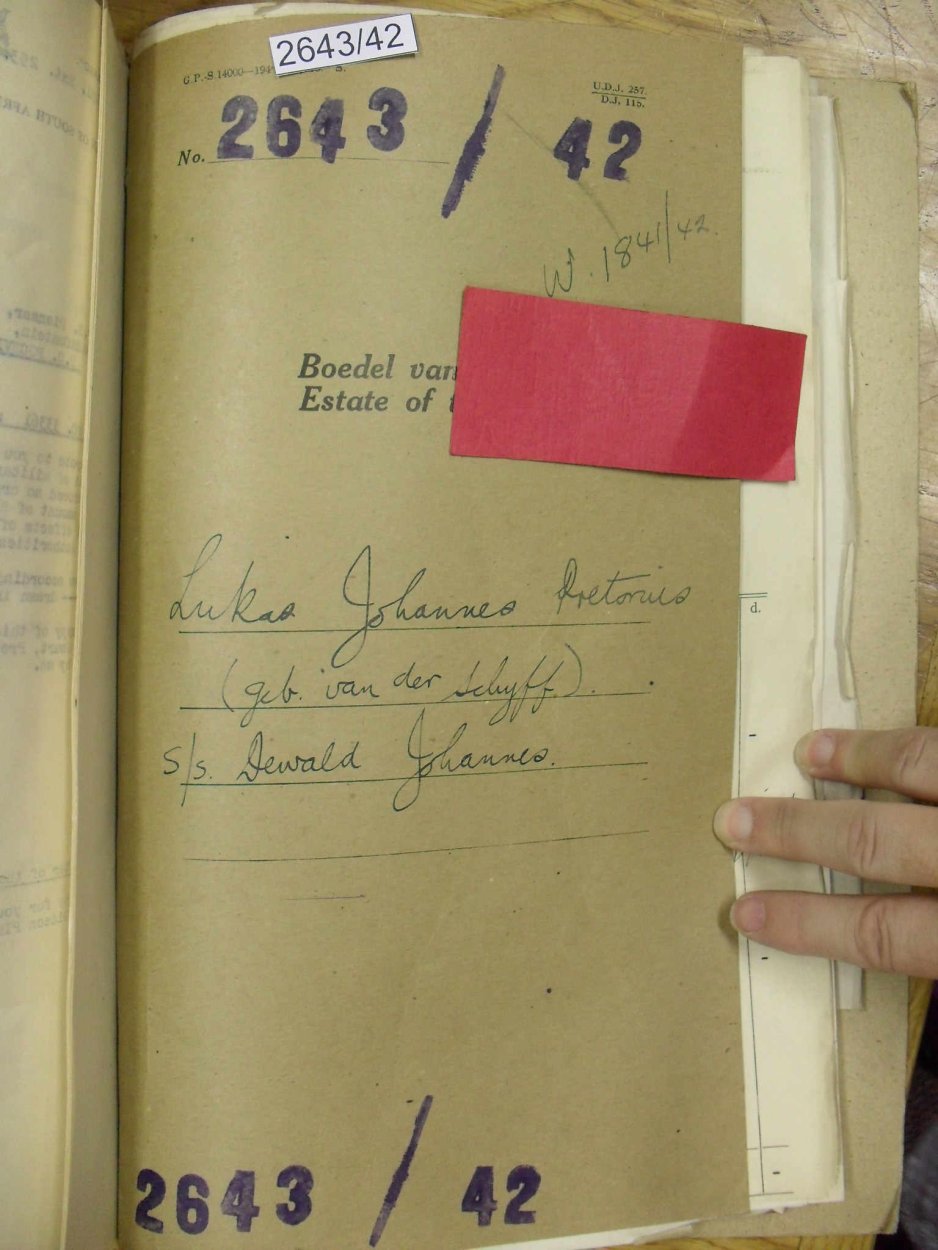 2643/42
G.P.-S.14000—194
U.D.J. 257.
D.J. 115.
No. 2643 / 42
W. 1841/42.
Boedel van
Estate of
Lukas Johannes Pretorius
(geb. van der Schyff).
s/s. Dewald Johannes.
d.
2643 / 42